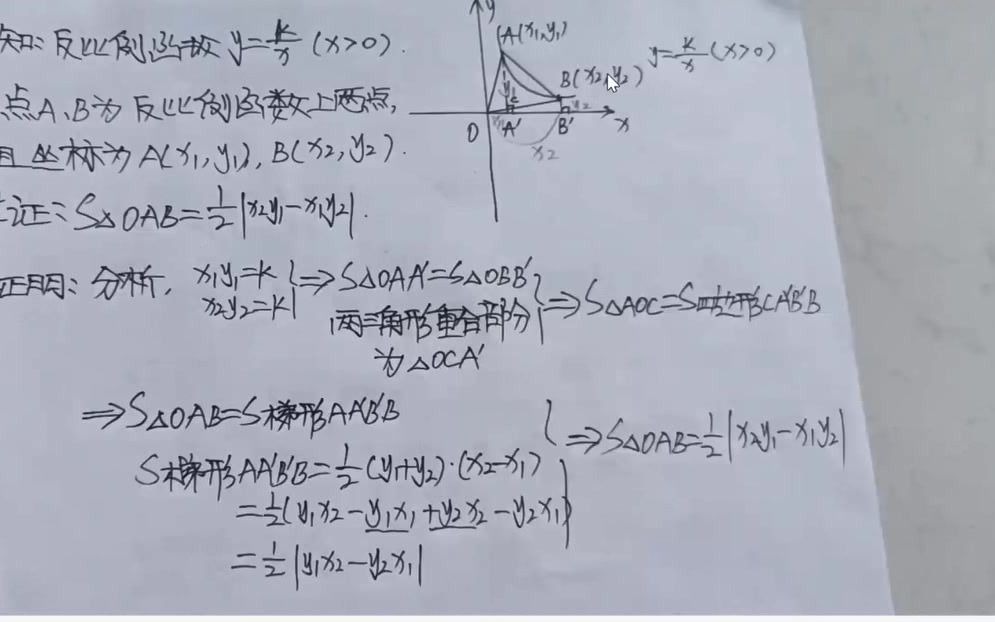 知: 反比例函数 y=k/x (x>0).
点A、B为反比例函数上两点,
且坐标为A(x₁,y₁), B(x₂,y₂).
证: S△OAB=1/2|x₂y₁-x₁y₂|.
y
A(x₁,y₁)
B(x₂,y₂)
y=k/x (x>0)
y₁
C
y₂
O
x₁
A′
B′
x
x₂
证明: 分析, x₁y₁=k
x₂y₂=k
⇒S△OAA′=S△OBB′
两三角形重合部分
为△OCA′
⇒S△AOC=S四边形CA′B′B
⇒S△OAB=S梯形AA′B′B
S梯形AA′B′B=1/2(y₁+y₂)·(x₂-x₁)
=1/2(y₁x₂-y₁x₁+y₂x₂-y₂x₁)
=1/2|y₁x₂-y₂x₁|
⇒S△OAB=1/2|x₂y₁-x₁y₂|